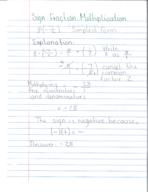 Sign Fraction Multiplication
Simplest Form
Explanation:
Write
8 as 8/1
cancel the
common
factor 2
Multiplying
the numerators
and denominators
= -28
The sign is negative because,
(-)(+) = -
Answer: -28